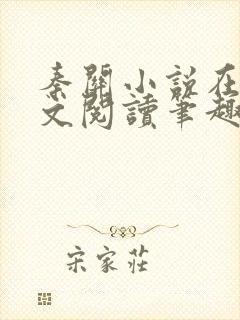 秦關小說在
文閱讀筆趣
宋家莊